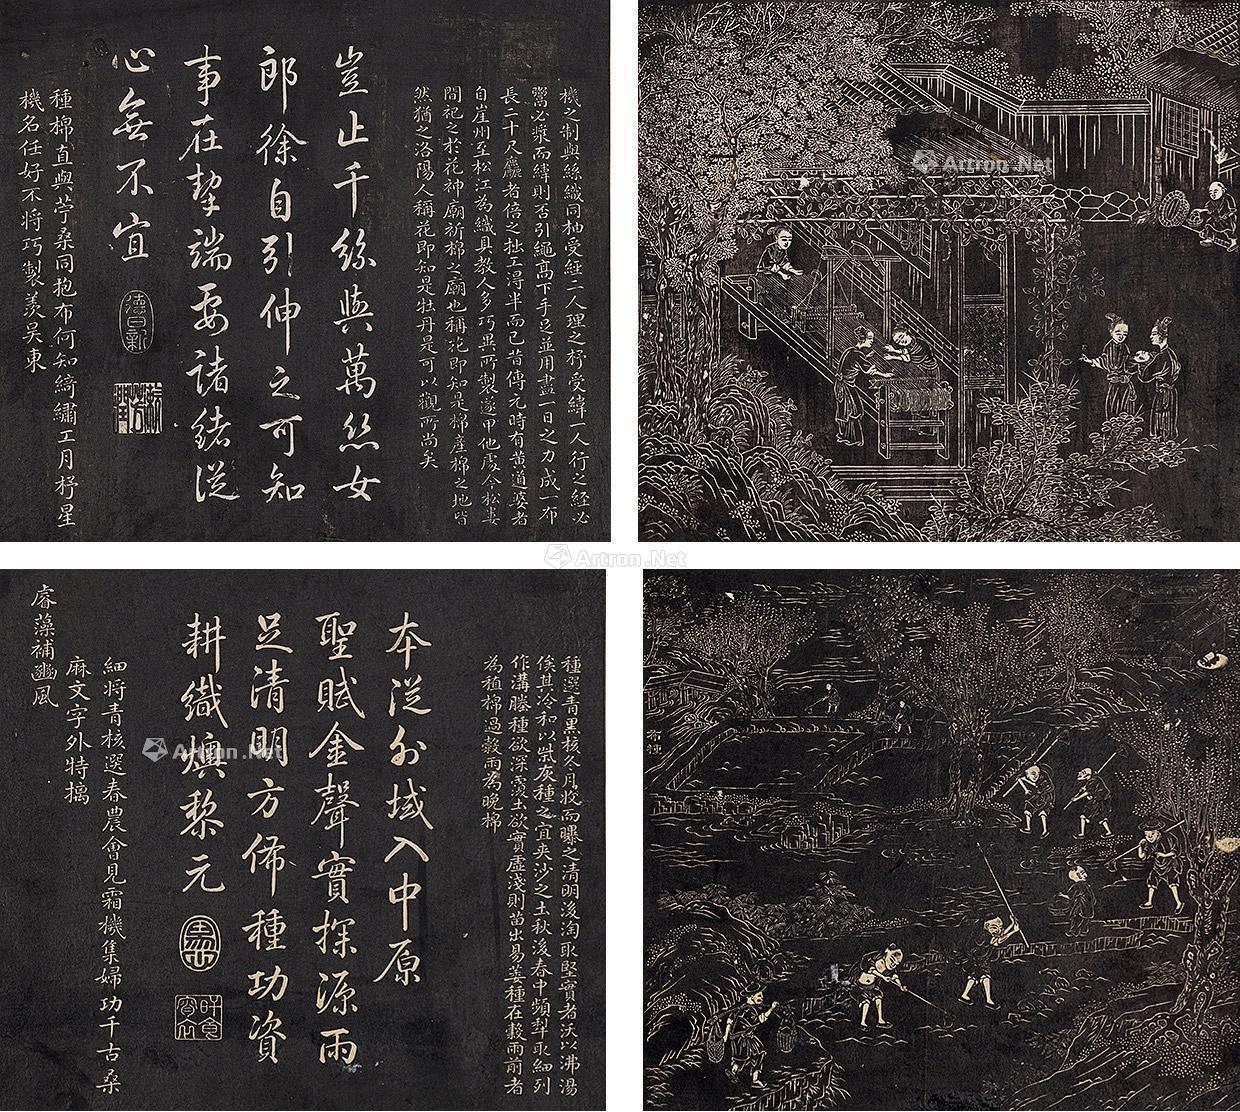 機之制與絲織同柚受經二人理之杼受緯一人行之經必
鬻必漿而緯則否引繩高下手足並用盡一日之力成一布
長二十尺麤者倍之拙工得半而已昔傳元時有黃道婆者
自崖州至松江為織具教人多巧異所製遂甲他處今松婁
間祀之於花神廟祈棉之廟也稱花即知是棉產棉之地皆
然猶之洛陽人稱花即知是牡丹是可以觀所尚矣
豈止千絲與萬絲女
郎徐自引伸之可知
事在挈端要諸緒從
心無不宜
德日新
種棉直與苧桑同抱布何知綺繡工月杼星
機名任好不將巧製羨吳東
Artron.Net
Artron.Net
種選青黑核冬月收而曝之清明後淘取堅實者沃以沸湯
俟其冷和以柴灰種之宜夾沙之土秋後春中頻犁取細列
作溝塍種欲深覆土欲實虛淺則苗出易萎種在穀雨前者
為植棉過穀雨為晚棉
本從外域入中原
聖賦金聲實探源雨
足清明方佈種功資
耕織燠黎元
細將青核選春農會見霜機集婦功千古桑
麻文字外特摛
睿藻補豳風
Artron.Net
布種